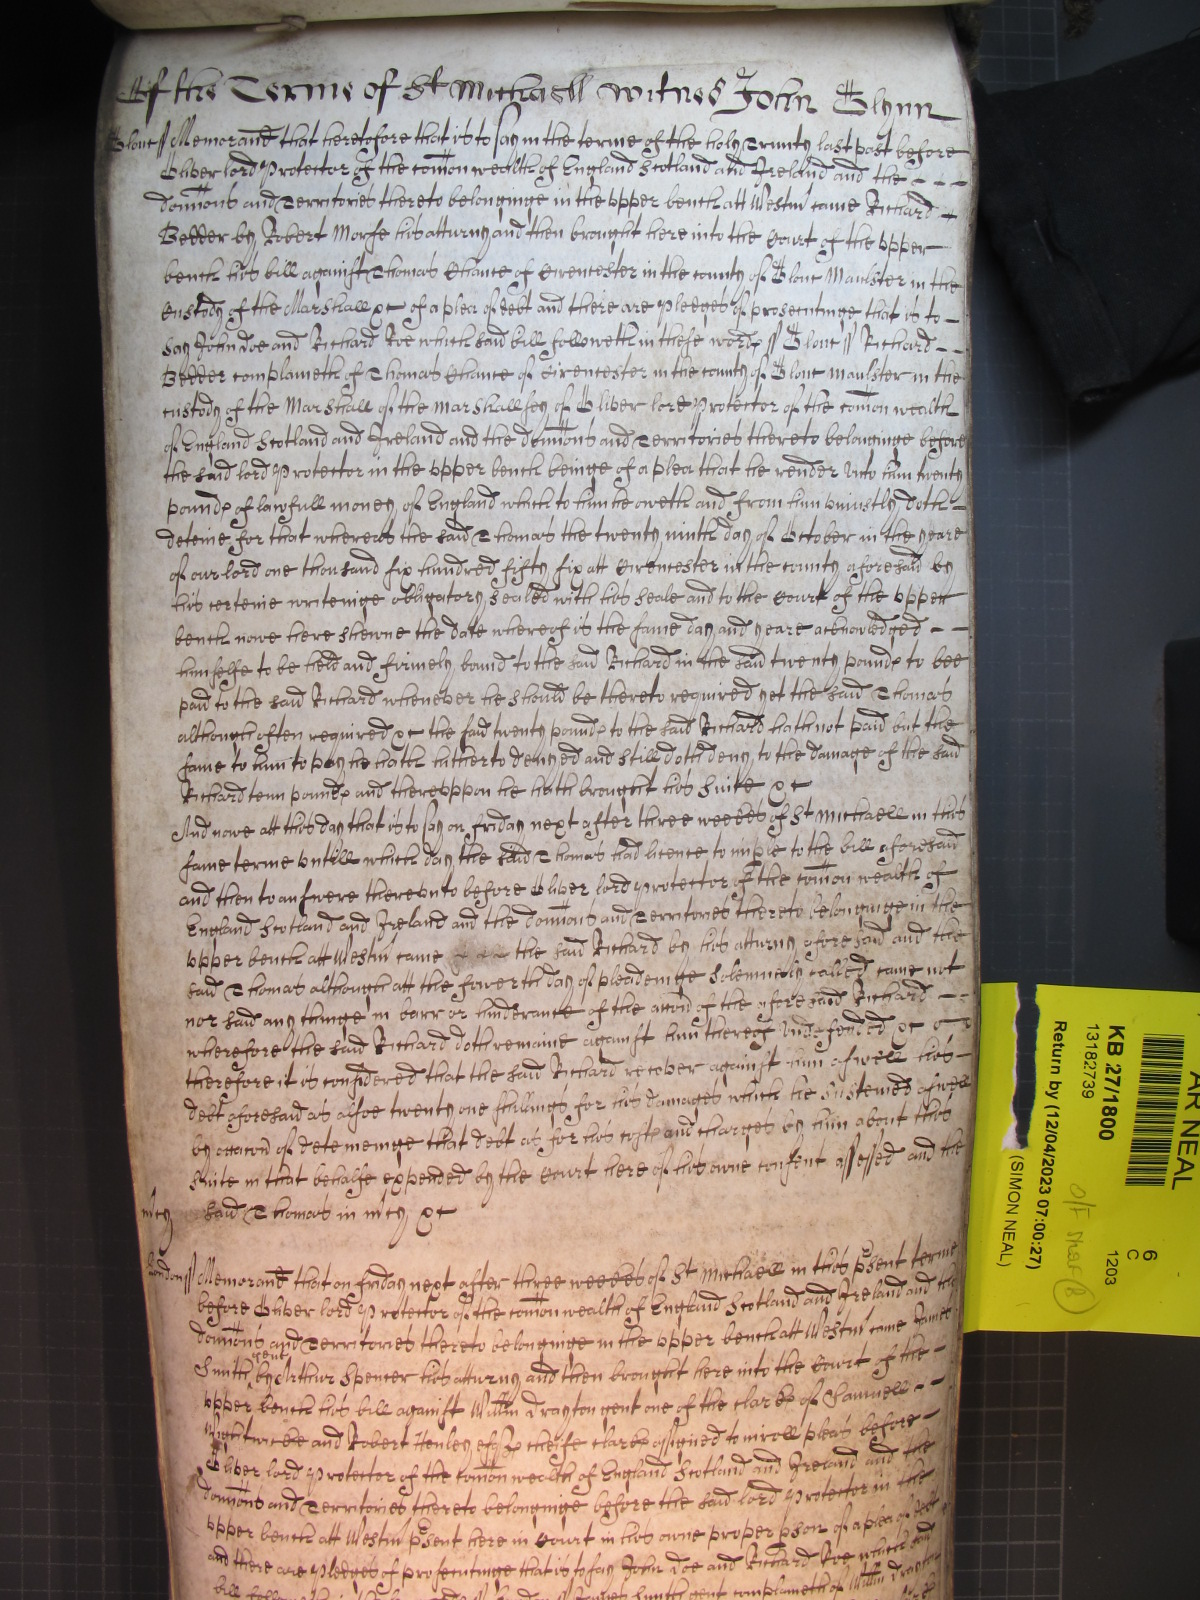 Of the Terme of St Michaell Witnes John Glynn
Glouc Memorand that heretofore that is to say in the terme of the holy Trinity last past before
Oliver lord Protector of the comon wealth of England Scotland and Ireland and the
domions and Territories thereto belonginge in the upper bench att Westm came Richard
Bedder by Robert Morse his atturny and then brought here into the Court of the upper
bench his bill against Thomas Chance of Cirencester in the county of Glouc Maulster in the
custody of the Marshall &c of a plea of debt and there are pledges of prosecutinge that is to
say John Doe and Richard Roe which said bill followeth in these words Glouc Richard
Bedder complaineth of Thomas Chance of Cirencester in the county of Glouc Maulster in the
custody of the Marshall of the Marshallsey of Oliver lord Protector of the comon wealth
of England Scotland and Ireland and the domions and Territories thereto belonginge before
the said lord Protector in the upper bench beinge of a plea that he render unto him twenty
pounds of lawfull money of England which to him he oweth and from him uniustly doth
deteine for that whereas the said Thomas the twenty ninth day of October in the yeare
of our lord one thousand six hundred fifty six att Cirencester in the county aforesaid by
his certeine writeinge obligatory sealed with his seale and to the Court of the upper
bench nowe here shewne the date whereof is the same day and yeare acknowledged
himselfe to be held and firmely bound to the said Richard in the said twenty pounds to bee
paid to the said Richard whenever he should be thereto required yet the said Thomas
although often required &c the said twenty pounds to the said Richard hath not paid but the
same to him to pay he hath hitherto denyed and still doth deny to the damage of the said
Richard tenn pounds and thereuppon he hath brought his suite &c
And nowe att this day that is to say on friday next after three weekes of St Michaell in this
same terme untill which day the said Thomas had licence to imple to the bill aforesaid
and then to answere thereunto before Oliver lord Protector of the comon wealth of
England Scotland and Ireland and the domions and Territories thereto belonginge in the
upper bench att Westm came the said Richard by his atturny aforesaid and the
said Thomas although att the fowerth day of pleadeinge solemnely called came not
nor said any thinge in barr or hinderance of the accon of the aforesaid Richard
wherefore the said Richard doth remaine against him thereof undefended &c
therefore it is considered that the said Richard recover against him aswell his
debt aforesaid as alsoe twenty one shillings for his damages which he susteined aswell
by occacon of deteineinge that debt as for his costs and charges by him about this
suite in that behalfe expended by the Court here of his owne consent assessed and the
mcy said Thomas in mcy &c
London Memorand that on friday next after three weekes of St Michaell in this psent terme
before Oliver lord Protector of the comon wealth of England Scotland and Ireland and the
domions and Territories thereto belonginge in the upper bench att Westm came James
Smith gent by Arthur Spencer his atturny and then brought here into the Court of the
upper bench his bill against Willm Drayton gent one of the clarks of Samuell
Wightwicke and Robert Henley esqs cheife clarks assigned to inroll pleas before
Oliver lord Protector of the comon wealth of England Scotland and Ireland and the
domions and Territories thereto belonginge before the said lord Protector in the
upper bench att Westm psent here in Court in his owne proper pson of a plea of debt
and there are pledges of prosecutinge that is to say John Doe and Richard Roe which said
bill gent complaineth of Willm Drayton
AR NEAL
KB 27/1800
13182739
Return by (12/04/2023 07:00:27)
(SIMON NEAL)
6
C
1203